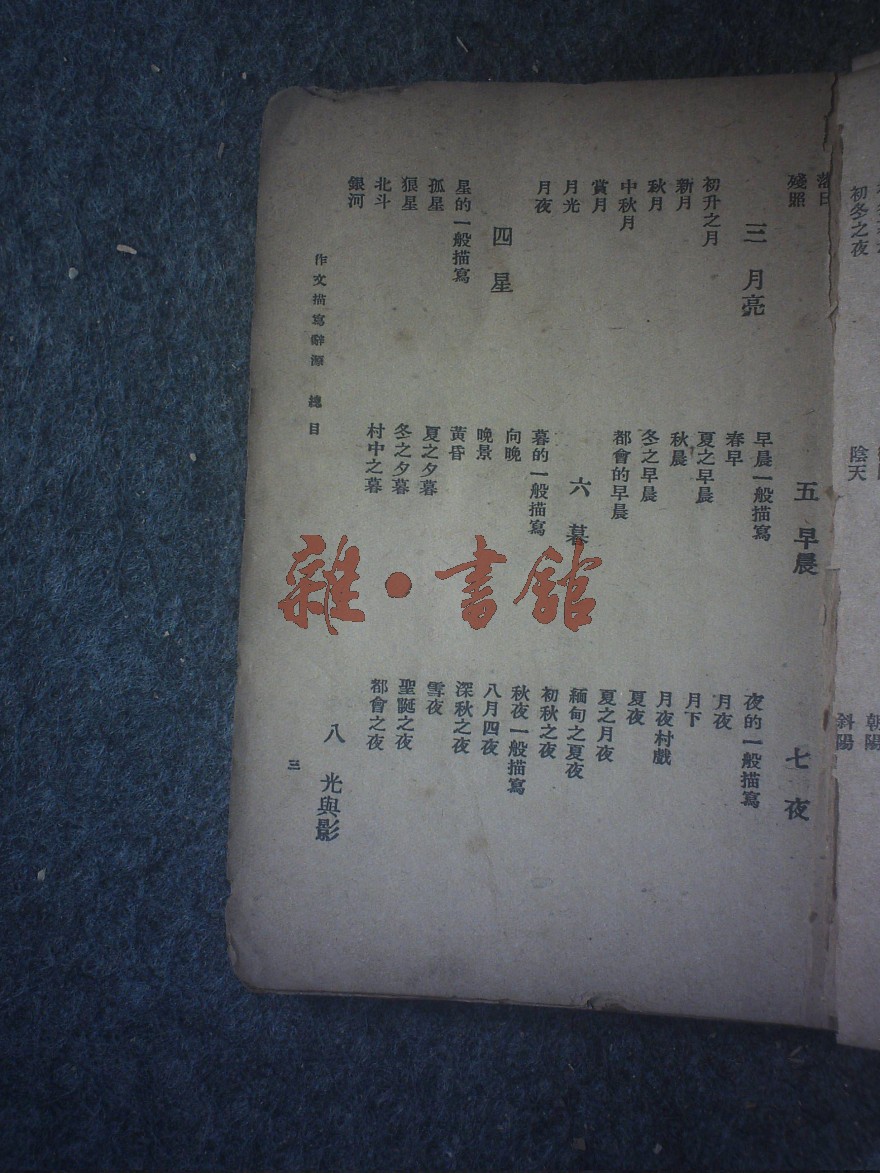 初冬之夜
陰天
朝陽
斜陽
落日
殘照
三 月亮
初升之月
新月
秋月
中秋月
賞月
月光
月夜
四 星
星的一般描寫
孤星
狼星
北斗
銀河
五 早晨
早晨一般描寫
春早
夏之早晨
秋晨
冬之早晨
都會的早晨
六 暮
暮的一般描寫
向晚
晚景
黃昏
夏之夕暮
冬之夕暮
村中之暮
七 夜
夜的一般描寫
月夜
月下
月夜村戲
夏夜
夏之月夜
緬甸之夏夜
初秋之夜
秋夜一般描寫
八月四夜
深秋之夜
雪夜
聖誕之夜
都會之夜
八 光與影
作文描寫辭源 總目
三
雜·書館